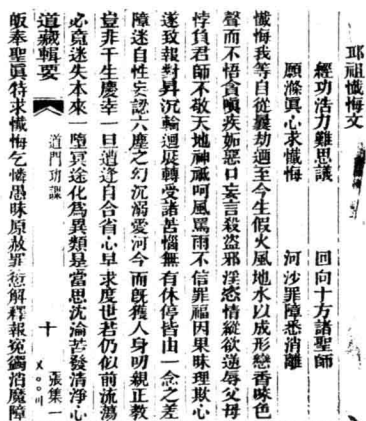 邱祖懺悔文
經功浩力難思議　回向十方諸聖師
願滌眞心求懺悔　河沙罪障悉消離
懺悔我等自從曩劫迺至今生假火風地水以成形戀香味色
聲而不悟貪嗔疾妬惡口妄言殺盜邪淫慾情縱欲逆辱父母
悖負君師不敬天地神祇呵風罵雨不信罪福因果昧理欺心
遂致報對昇沉輪迴展轉受諸苦惱無有休停皆由一念之差
障迷自性妄認六塵之幻沉溺愛河今而既獲人身叨親正教
豈非千生慶幸一旦遭逢自合省心早求度世若仍似前流蕩
必竟迷失本來一墮冥途化爲異類是當思沈淪苦發清淨心
道藏輯要
道門功課
十
張集一
皈奉聖眞特求懺悔乞憐愚昧原赦罪愆解釋報冤蠲消魔障